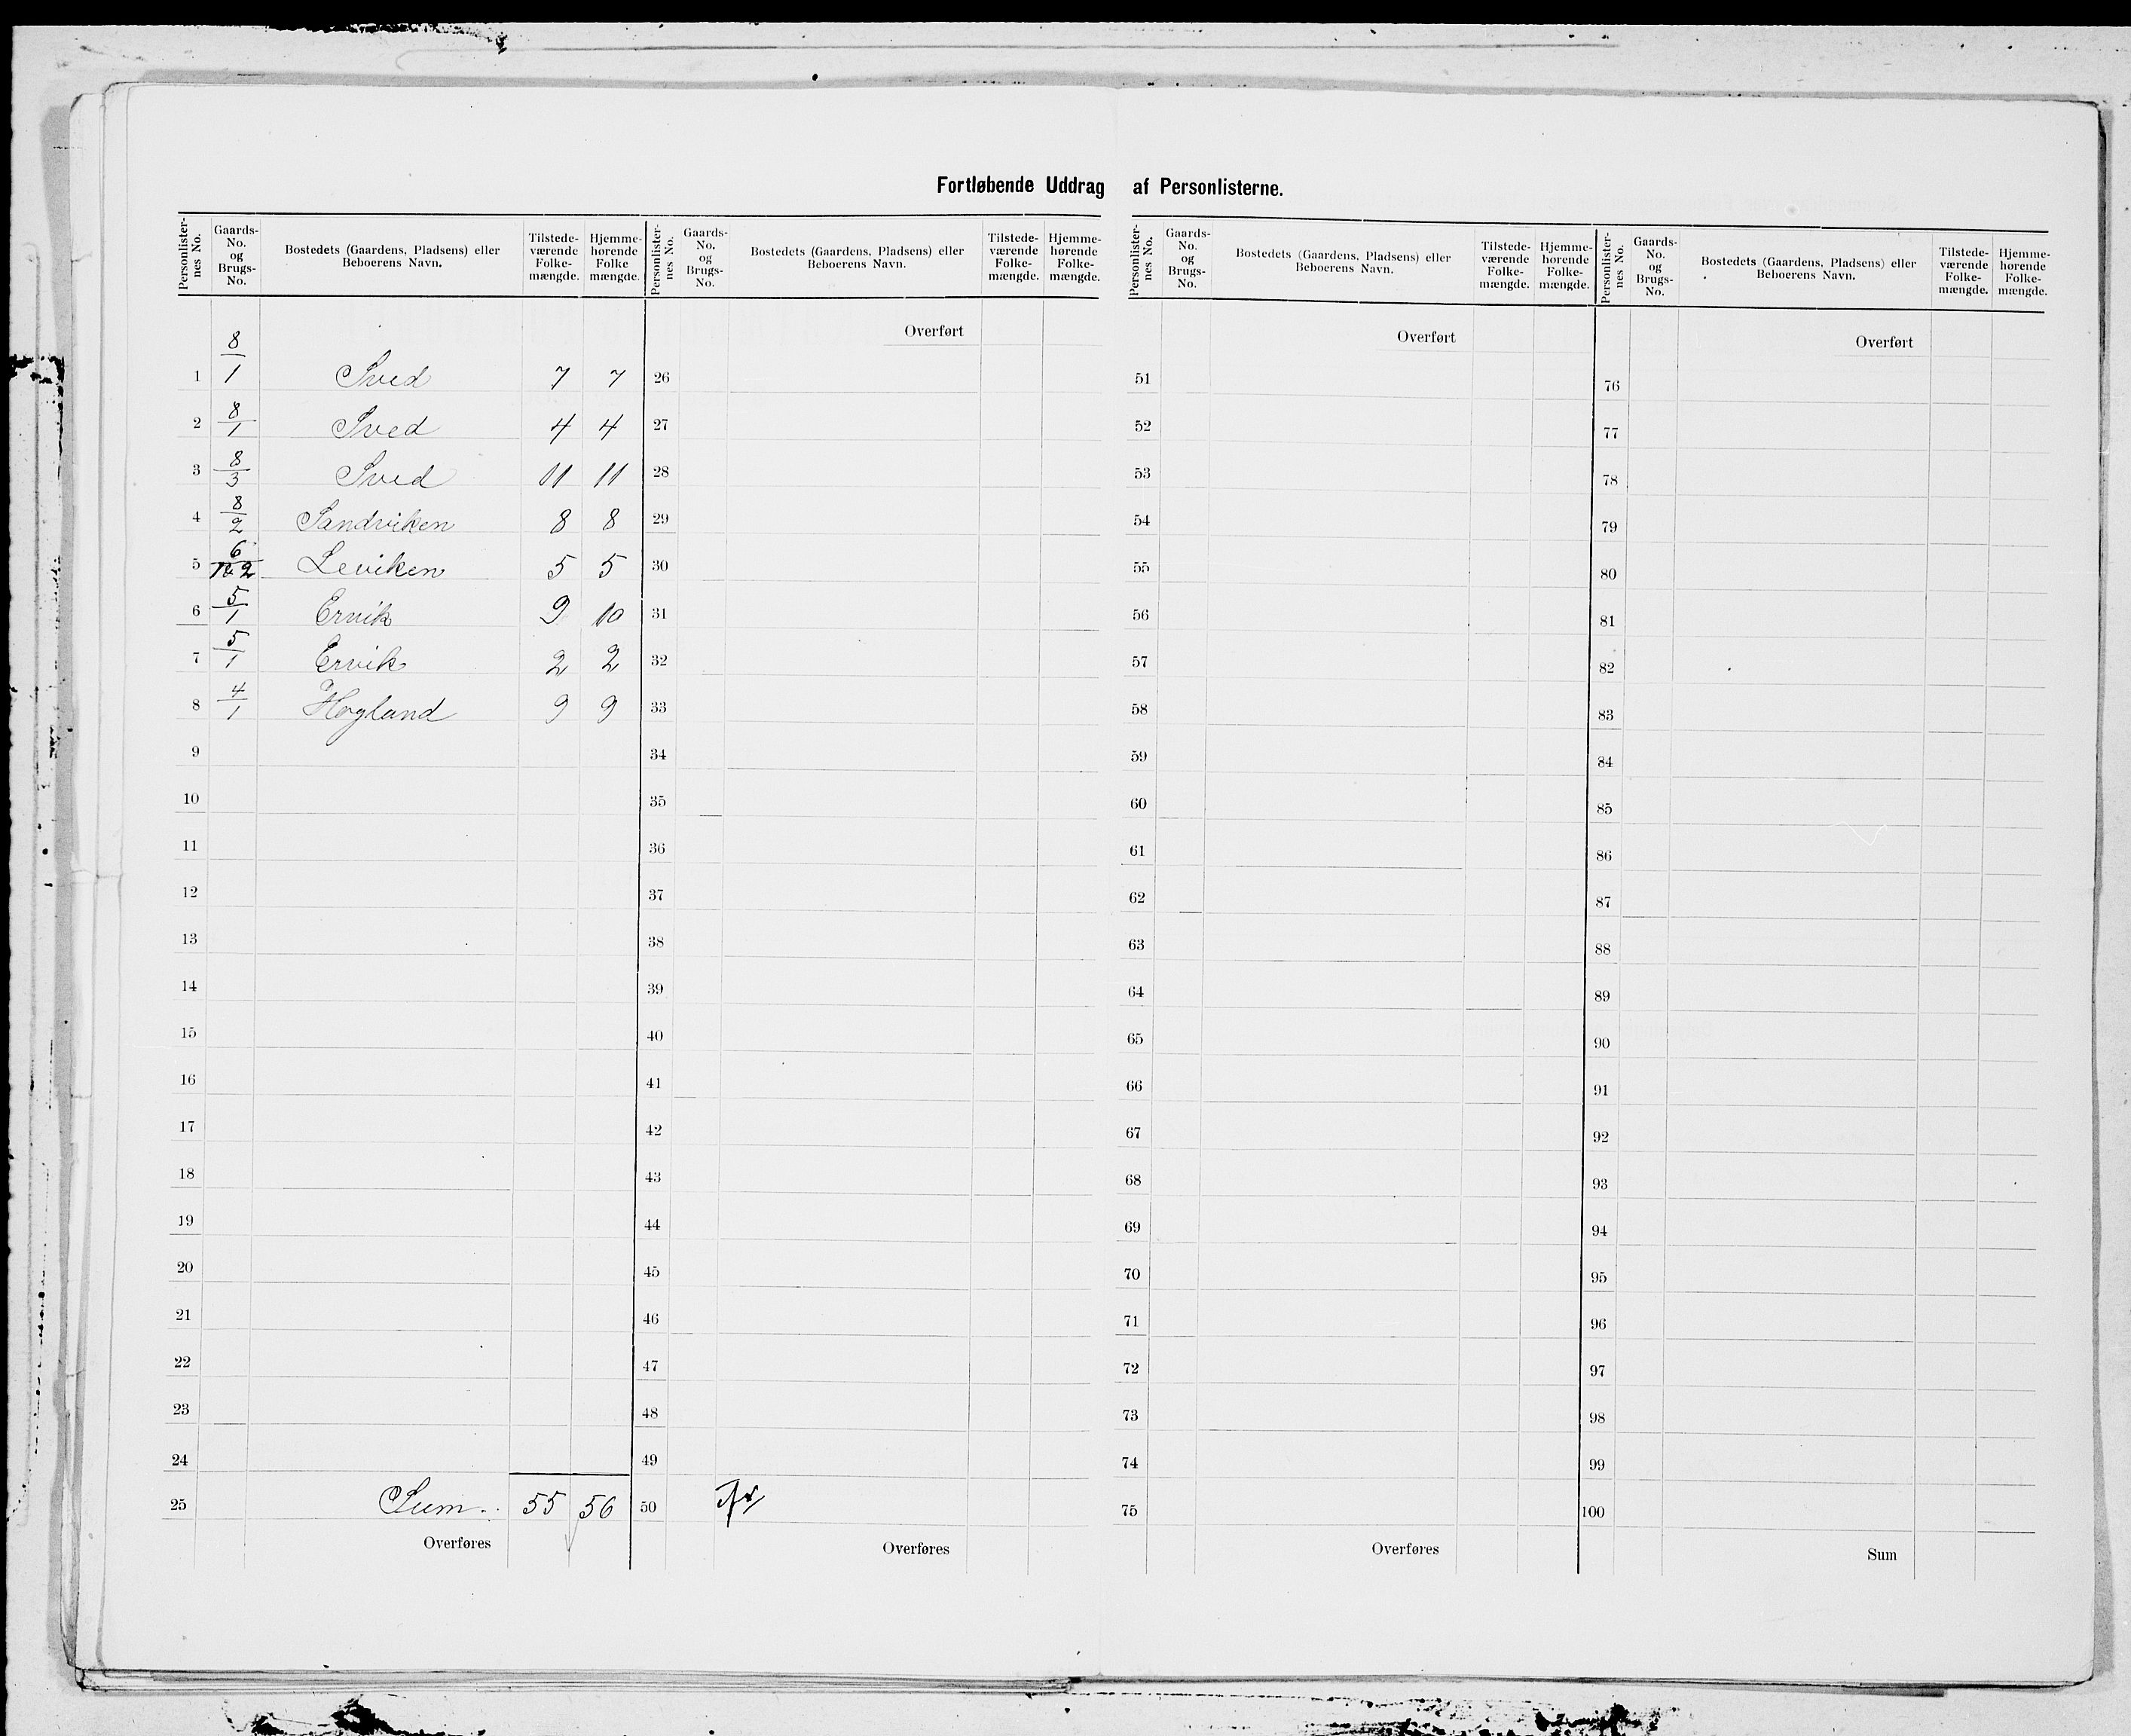 Fortløbende Uddrag af Personlisterne.
Personlister-nes No. Gaards-No. og Brugs-No. Bostedets (Gaardens, Pladsens) eller Beboerens Navn. Tilstede-værende Folke-mængde. Hjemme-hørende Folke mængde. Personlister-nes No. Gaards-No. og Brugs-No. Bostedets (Gaardens, Pladsens) eller Beboerens Navn. Tilstede-værende Folke-mængde. Hjemme-hørende Folke-mængde. Personlister-nes No. Gaards-No. og Brugs-No. Bostedets (Gaardens, Pladsens) eller Beboerens Navn. Tilstede-værende Folke-mængde. Hjemme-hørende Folke-mængde. Personlister-nes No. Gaards-No. og Brugs-No. Bostedets (Gaardens, Pladsens) eller Beboerens Navn. Tilstede-værende Folke-mængde. Hjemme-hørende Folke-mængde.
Overført Overført Overført
1 8/1 Sved 7 7 26 51 76
2 8/1 Sved 4 4 27 52 77
3 8/3 Sved 11 11 28 53 78
4 8/2 Sandviken 8 8 29 54 79
5 6/2 Leviken 5 5 30 55 80
6 5/1 Ervik 9 10 31 56 81
7 5/1 Ervik 2 2 32 57 82
8 4/1 Høgland 9 9 33 58 83
9 34 59 84
10 35 60 85
11 36 61 86
12 37 62 87
13 38 63 88
14 39 64 89
15 40 65 90
16 41 66 91
17 42 67 92
18 43 68 93
19 44 69 94
20 45 70 95
21 46 71 96
22 47 72 97
23 48 73 98
24 49 74 99
25 Sum 55 56 50 75 100
Overføres Overføres Overføres Sum